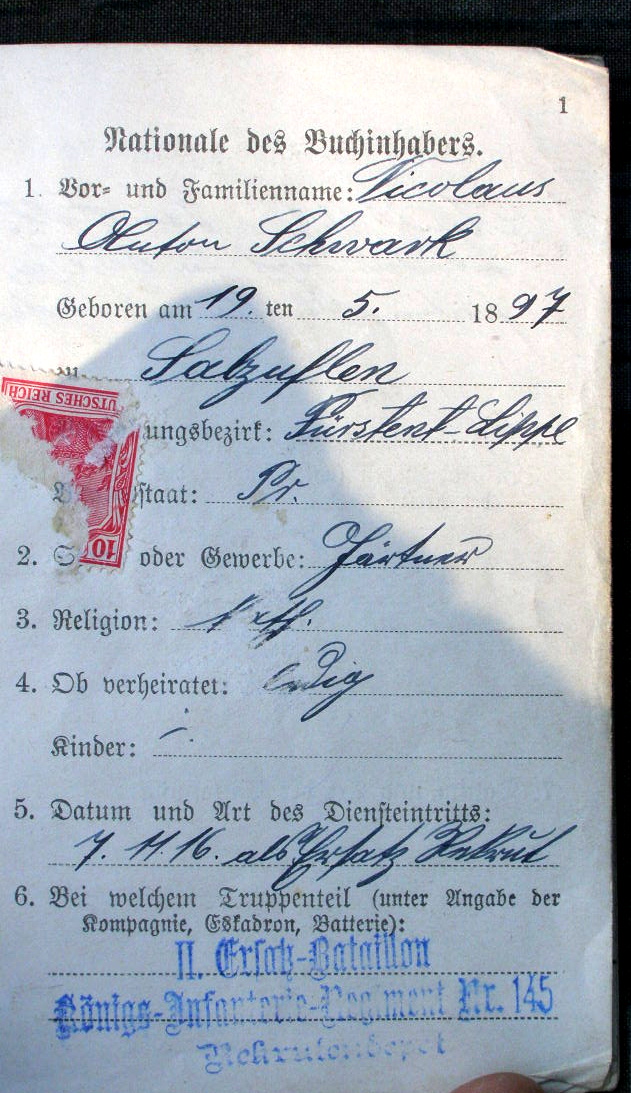 1
Nationale des Buchinhabers.
1. Vor- und Familienname: Nicolaus
Anton Schwark
Geboren am 19. ten 5. 1897
zu Salzuflen
UTSCHES REICH
ungsbezirk: Fürstent-Lippe
staat: Pr.
10
2. S oder Gewerbe: Gärtner
3. Religion:
4. Ob verheiratet: ledig
Kinder: -
5. Datum und Art des Diensteintritts:
7. 11 16. als Ersatz Rekrut
6. Bei welchem Truppenteil (unter Angabe der
Kompagnie, Eskadron, Batterie):
II. Ersatz-Bataillon
Königs-Infanterie-Regiment Nr. 145
Rekrutendepot